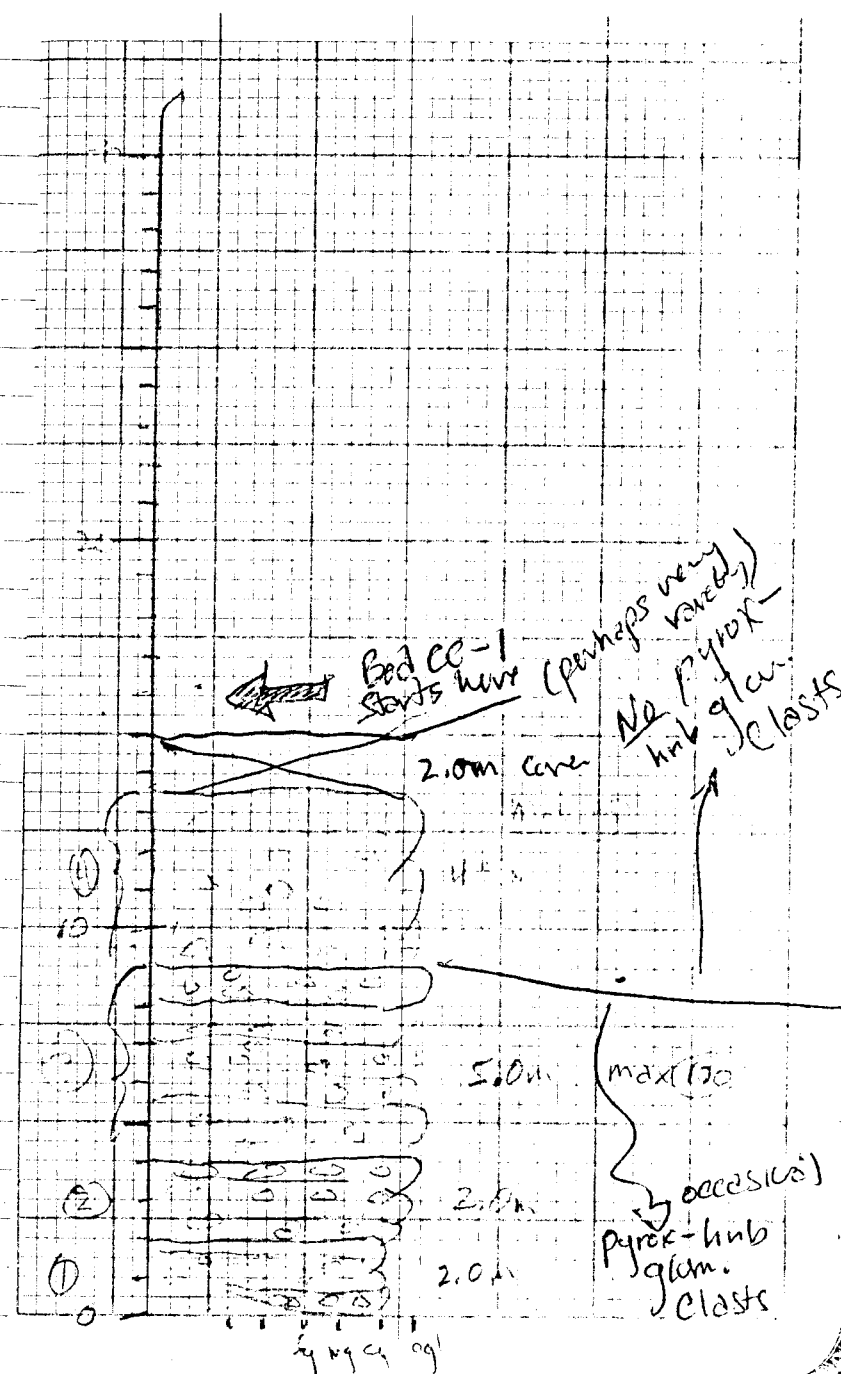 Bed CC-1
starts here
(perhaps very
rarely)
No pyrox-
hnb glom.
clasts
2.0m cover
④
10
5.0m
max 170
②
2.0m
occasional
pyrox-hnb
glom.
clasts
①
2.0m
0